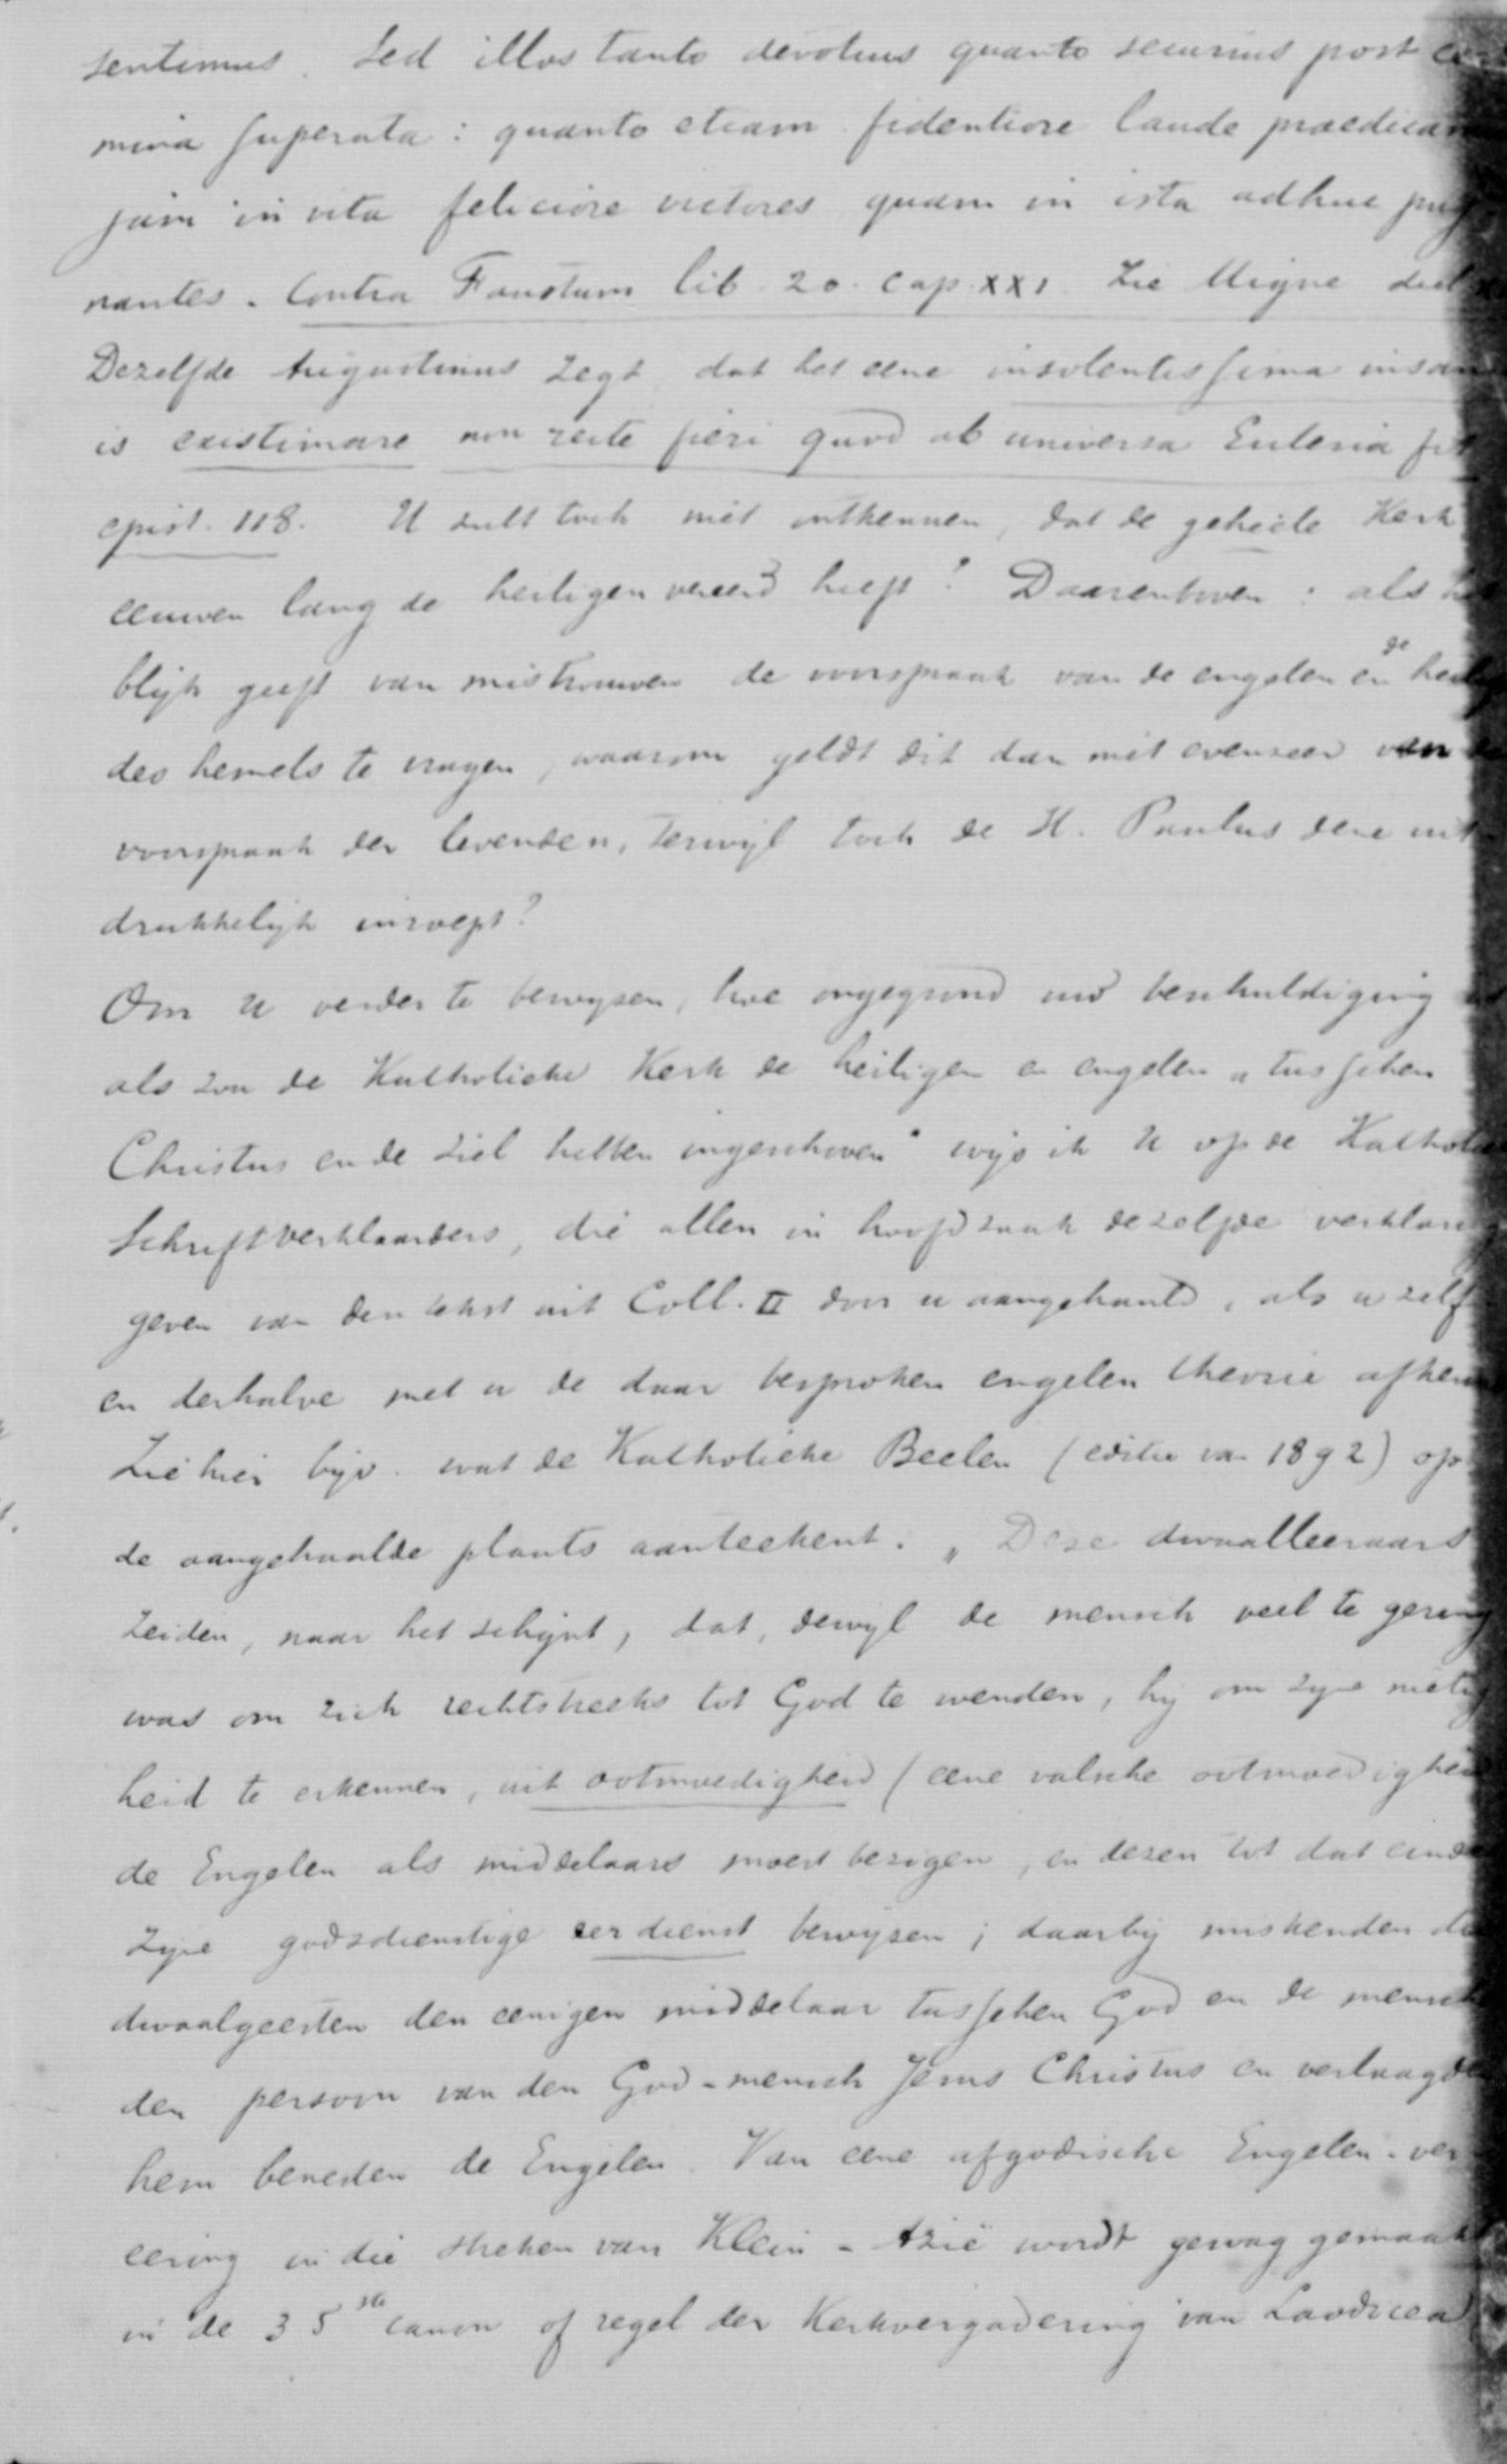 sentimus. Sed illos tanto devotius quanto securius post
mina superata: quanto etiam fidentiore laude praedicam
jam in vita feliciore victores quam in ista adhuc pug
nantes. Contra Faustum lib. 20. cap. XXI. Zie Migne deel
Dezelfde Augustinus zegt dat het eene insolentissima insan
is existimare non recte fieri quod ab universa Ecclesia fit
epist. 118. U zult toch niet ontkennen, dat de geheele Kerk
eeuwen lang de heiligen vereerd heeft? Daarenboven: als het
blijk geeft van mistrouwen de voorspraak van de engelen en de heilig
des hemels te vragen, waarom geldt dit dan niet evenzeer van de
voorspraak der levenden, terwijl toch de H. Paulus deze uit
drukkelijk inroept?
Om U verder te bewijzen, hoe ongegrond uw beschuldiging
als zou de Katholieke Kerk de heiligen en engelen „tusschen
Christus en de ziel hebben ingeschoven" wijs ik U op de Katholie
Schriftverklaarders, die allen in hoofdzaak dezelfde verklaring
geven van den tekst uit Coll. II door u aangehaald, als u zelf
en derhalve met u de daar besproken engelen theorie afkeu
Zie hier bijv. wat de Katholieke Beelen (editie van 1892) op
de aangehaalde plaats aanteekent: „Deze dwaalleeraars
zeiden, naar het schijnt, dat, dewijl de mensch veel te gering
was om zich rechtstreeks tot God te wenden, hij om zijne nietig
heid te erkennen, uit ootmoedigheid (eene valsche ootmoedigheid
de Engelen als middelaars moest bezigen, en dezen tot dat einde
zijne godsdienstige eerdienst bewijzen; daarbij miskenden de
dwaalgeesten den eenigen middelaar tusschen God en de mensch
den persoon van den God-mensch Jesus Christus en verlaagde
hem beneden de Engelen. Van eene afgodische Engelen-ver
eering in die streken van Klein-Azië wordt gewag gemaakt
in de 35ste canon of regel der Kerkvergadering van Laodicea